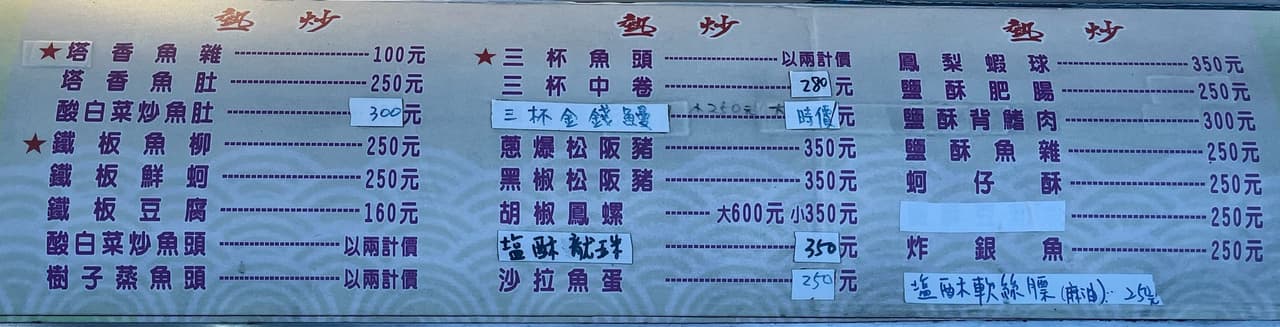 熱炒
★塔香魚雜 100元
塔香魚肚 250元
酸白菜炒魚肚 300元
★鐵板魚柳 250元
鐵板鮮蚵 250元
鐵板豆腐 160元
酸白菜炒魚頭 以兩計價
樹子蒸魚頭 以兩計價
熱炒
★三杯魚頭 以兩計價
三杯中卷 280元
三杯金錢鰻 時價元
蔥爆松阪豬 350元
黑椒松阪豬 350元
胡椒鳳螺 大600元 小350元
塩酥龍珠 350元
沙拉魚蛋 250元
熱炒
鳳梨蝦球 350元
鹽酥肥腸 250元
鹽酥背鰭肉 300元
鹽酥魚雜 250元
蚵仔酥 250元
250元
炸銀魚 250元
塩酥軟絲膘(麻油)‥250元